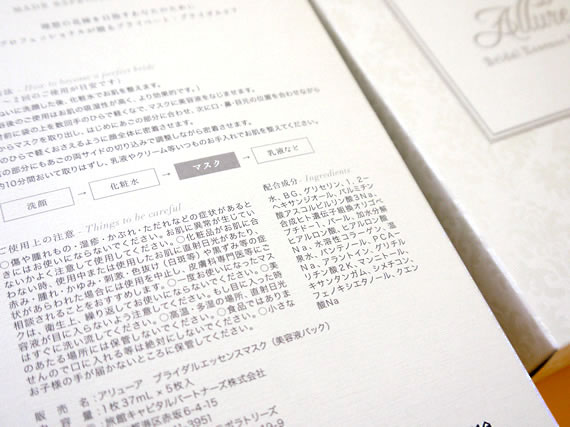 理想の花嫁を目指すあなたのために
プロフェッショナルが贈るプライベート・ブライダルケア
How to become a perfect bride
～2回のご使用が目安です）
ないに洗顔した後、化粧水でお肌を整えます。
からマスクを取り出し、はじめにあごの部分に合わせ、次に口・鼻・目元の位置を合わせながら
のひらで軽くおさえるように顔全体に密着させます。
の部分にもあごの両サイドの切り込みで調整しながら密着させます。
10分間おいて取りはずし、乳液やクリーム等いつものお手入れでお肌を整えてください。
洗顔 → 化粧水 → マスク → 乳液など
ご使用上の注意 · Things to be careful
○傷や腫れもの・湿疹・かぶれ・ただれなどの症状があると
きにはお使いにならないでください。○お肌に異常が生じてい
ないかよく注意して使用してください。○化粧品がお肌に合
わない時、使用中または使用したお肌に直射日光があたり、
赤み・腫れ・かゆみ・刺激、色抜け（白斑等）や黒ずみ等の症
状があらわれた場合には使用を中止し、皮膚科専門医等にご
相談されることをおすすめします。○一度お使いになったマス
クは、衛生上、繰り返してお使いにならないでください。○美
容液が目に入らないようご注意ください。もし目に入った時
はすぐに洗い流してください。○高温・多湿の場所、直射日光
のあたる場所には保管しないでください。○食品ではありま
せんので口に入れる等は絶対にしないでください。○小さな
お子様の手が届かないところに保管してください。
配合成分 · Ingredients
水、BG、グリセリン、1、2－
ヘキサンジオール、パルミチン
酸アスコルビルリン酸3Na、
合成ヒト遺伝子組換オリゴペ
プチド-1、パール、加水分解
ヒアルロン酸、ヒアルロン酸
Na、水溶性コラーゲン、温
泉水、ベタイン、PCA－
Na、アラントイン、グリチル
リチン酸2K、マンニトール、
キサンタンガム、シメチコン、
フェノキシエタノール、クエン
酸Na
販売名：アリューア ブライダルエッセンスマスク（美容液パック）
内容量：1枚37mL×5枚入
：旅館キャピタルパートナーズ株式会社
都港区赤坂6-4-15
Allure
Bridal Essence